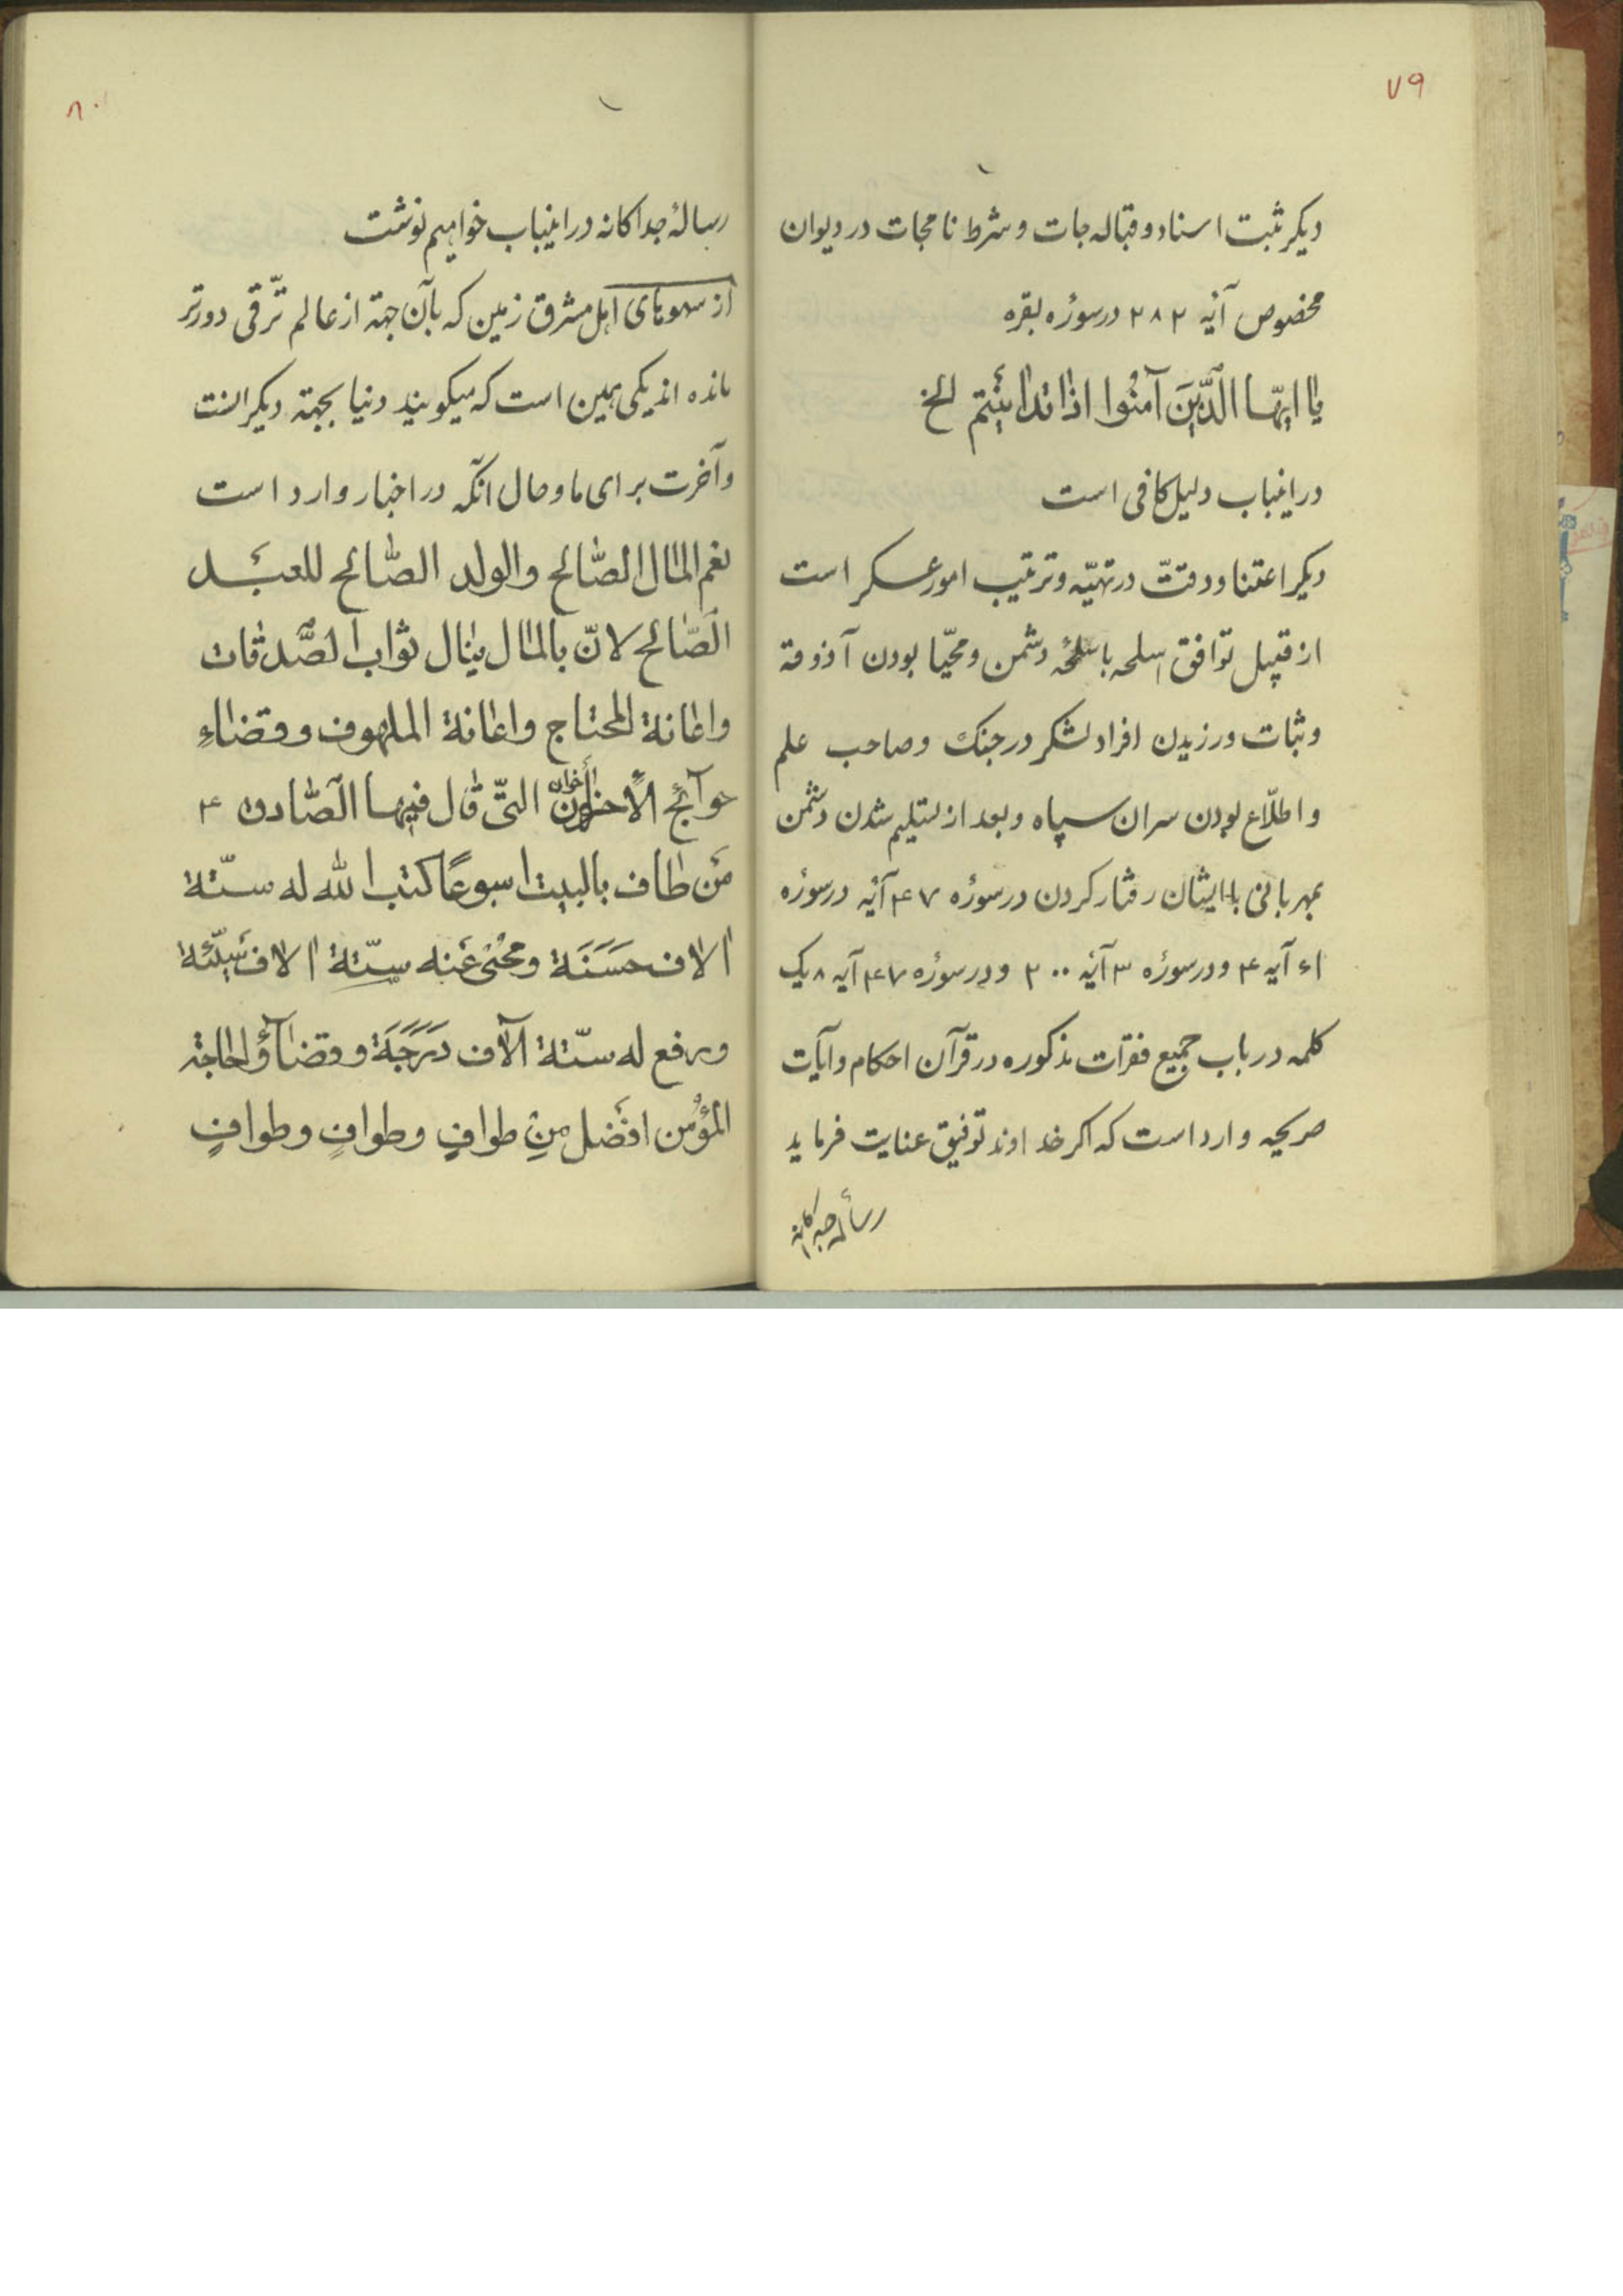 ۷۹
دیکر ثبت اسناد و قباله جات و شرط نامجات در دیوان
مخصوص آیه ۲۸۲ در سورۀ بقره
یا ایّها الَّذینَ آمَنُوا اذا تداینتم الخ
در اینباب دلیل کافی است
دیکر اعتنا و دقتّ در تهیّه و ترتیب امور عسکر است
از قبیل توافق اسلحه با سلحۀ دشمن و محیّا بودن آذوقة
و ثبات ورزیدن افراد لشکر در جنک و صاحب علم
و اطلّاع بودن سران سپاه و بعد از تسلیم شدن دشمن
بمهربانی با ایشان رفتار کردن در سورۀ ۴۷ آیه در سورۀ
۶۱ آیه ۴ و در سورۀ ۳ آیه ۲۰۰ و در سورۀ ۴۷ آیه ۸ یک
کلمه در باب جمیع فقرات مذکوره در قرآن احکام و آیات
صریحه وارد است که اکر خداوند توفیق عنایت فرماید
رسالۀ جداکانه
۸۰
رسالۀ جداکانه در اینباب خواهیم نوشت
از سهوهای اهل مشرق زمین که بآن جهة از عالم ترّقی دورتر
مانده اند یکی همین است که میکویند دنیا بجهة دیکرانست
و آخرت برای ما و حال آنکه در اخبار وارد است
نعم المال الصّالح والولد الصّالح للعبد
الصّالح لانّ بالمال ینال ثواب الصّدقات
واعانة المحتاج واغاثة الملهوف وقضاءِ
حوآئج الأخوان التّی قال فیها الصّادق ع
مَن طاف بالبیت اسبوعًا کتب الله له ستّة
الاف حَسَنَة ومُحیَ عَنه ستّة الاف سَیّئة
ورفع له ستّة آلاف دَرَجَة وقضآؤ الحاجة
المؤُمن افضل مِن طوافٍ وطوافٍ وطوافٍ